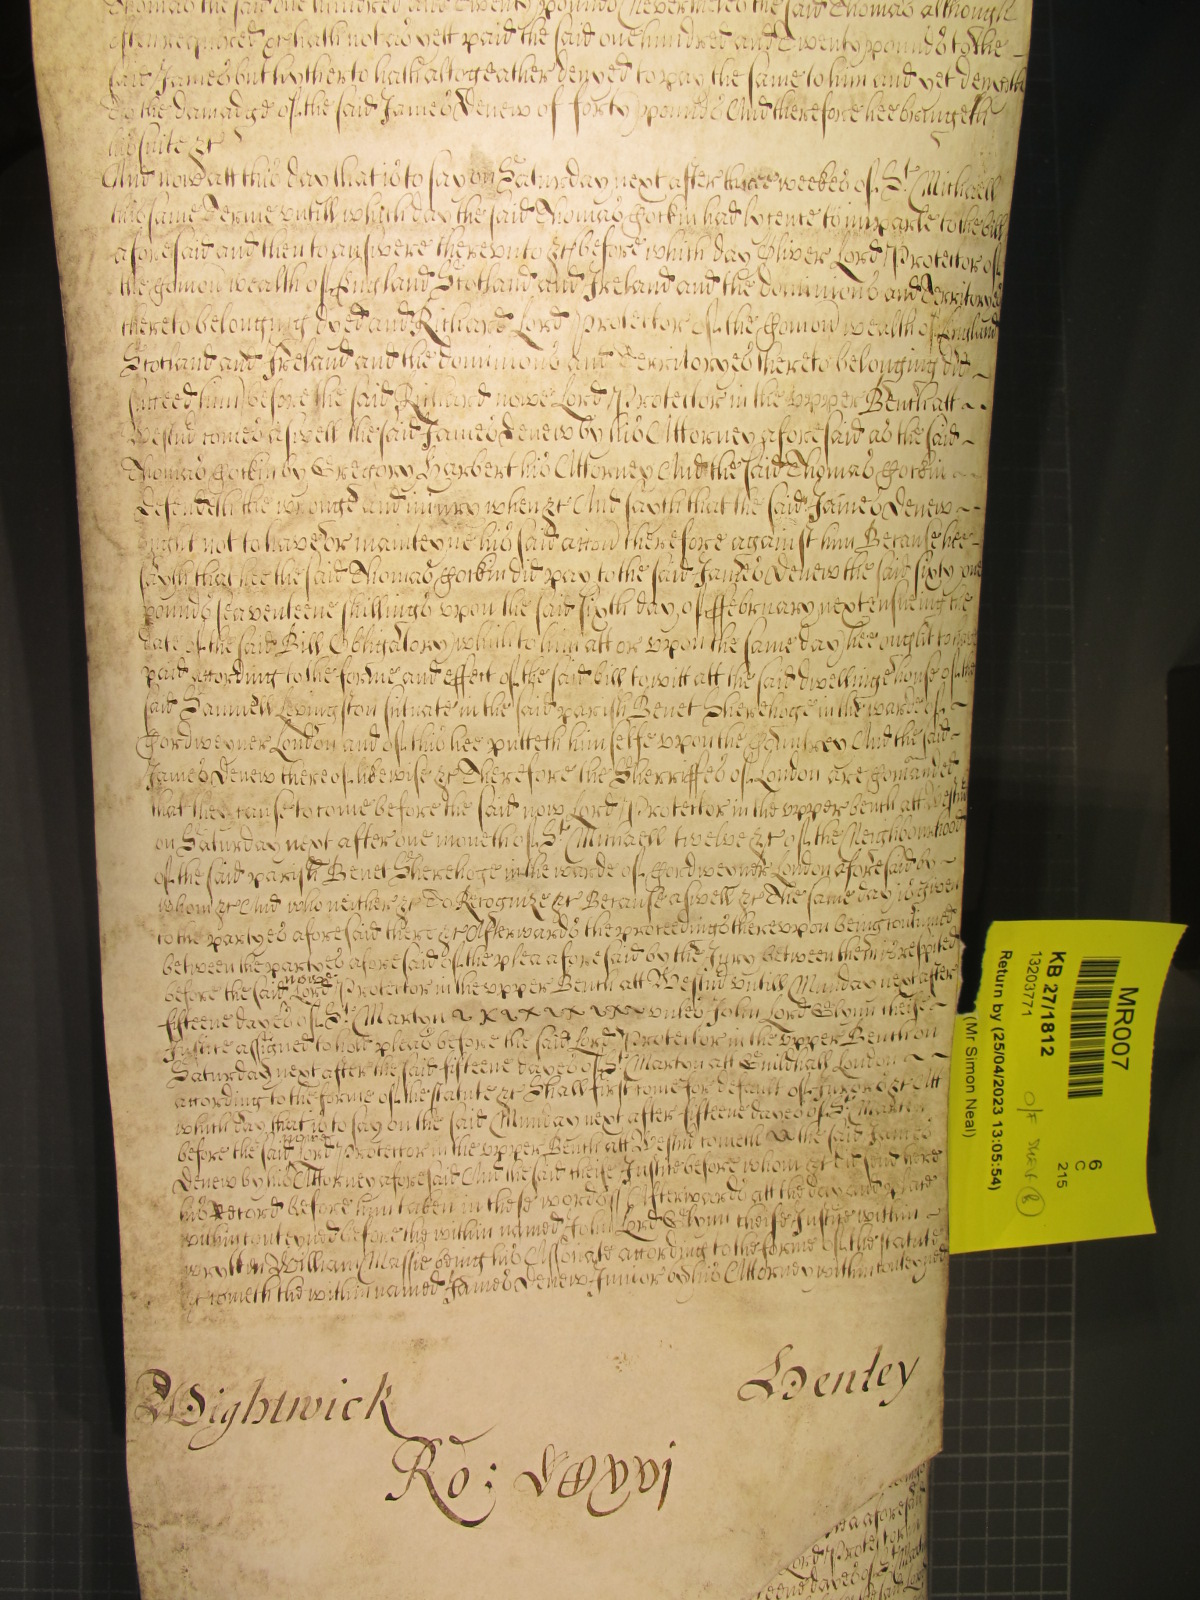 Thomas the said one hundred and Twenty pounds Neverthelesse the said Thomas although
often requyred &c hath not as yett paid the said one hundred and Twenty pounds to the
said James but hytherto hath altogeather denyed to pay the same to him and yet denyeth
To the damadge of the said James Denew of forty pounds And therefore hee bringeth
his suite &c
And now att this day that is to say on Saturday next after three weekes of St Michaell
this same Terme untill which day the said Thomas Gotkin had lycence to imparle to the bill
aforesaid and then to answere thereunto &c before which day Oliver Lord Protector of
the Comon wealth of England Scotland and Ireland and the dominions and Territoryes
thereto belonging dyed and Richard Lord Protector of the Comon wealth of England
Scotland and Ireland and the dominions and Territoryes thereto belonging did
succeed him before the said Richard nowe Lord Protector in the upper Bench att
Westmr comes aswell the said James Denew by his Attorney aforesaid as the said
Thomas Gotkin by Gregory Harbert his Attorney And the said Thomas Gotkin
defendeth the wronge and iniury when &c And sayth that the said James Denew
ought not to have or mainteyne his said accon therefore against him Because hee
sayth that hee the said Thomas Gotkin did pay to the said James Denew the said sixty one
pounds seaventeene shillings upon the said sixth day of ffebruary next ensueing the
date of the said Bill Obligatory which to him att or upon the same day hee ought to have
paid according to the forme and effect of the said bill to witt att the said dwelling house of the
said Samuell Levingston scituate in the said parish Benet Sherehoge in the warde of
Cordweyner London and of this hee putteth himselfe upon the Countrey And the said
James Denew thereof likewise &c Therefore the Sherriffes of London are Comanded
that they cause to come before the said now Lord Protector in the upper bench att Westmr
on Saturday next after one moneth of St Michaell twelve &c of the Neighbourhood
of the said parish Benet Sherehoge in the warde of Cordweyner London aforesaid by
whom &c And who neither &c To Recognize &c Because aswell &c The same day is given
to the partyes aforesaid there &c Afterwards the proceedings thereupon being continued
between the partyes aforesaid of the plea aforesaid by the Jury between them is respited
before the said nowe Lord Protector in the upper Bench att Westmr untill Munday next after
fifteene dayes of St Martyn unles John Lord Glynn cheife
Justice assigned to hold pleas before the said Lord Protector in the upper Bench on
Saturday next after the said fifteene dayes of St Martyn att Guildhall London
according to the forme of the statute &c Shall first come for default of Jurors &c Att
which day that is to say on the said Munday next after fifteene dayes of St Martyn
before the said nowe Lord Protector in the upper Bench att Westmr cometh the said James
Denew by his Attorney aforesaid And the said cheife Justice before whom &c did send here
his Record before him taken in these words Afterwards att the day and place
within conteyned before the within named John Lord Glynn cheife Justice within
wrytten William Massie being his Associate according to the forme of the statute
&c cometh the within named James Denew Junior by his Attorney within conteyned
Wightwick
Henley
Ro:
MR007
6
C
215
KB 27/1812
13203771
O/F Shelf B
Return by (25/04/2023 13:05:54)
(Mr Simon Neal)
aforesaid
Lord Protector